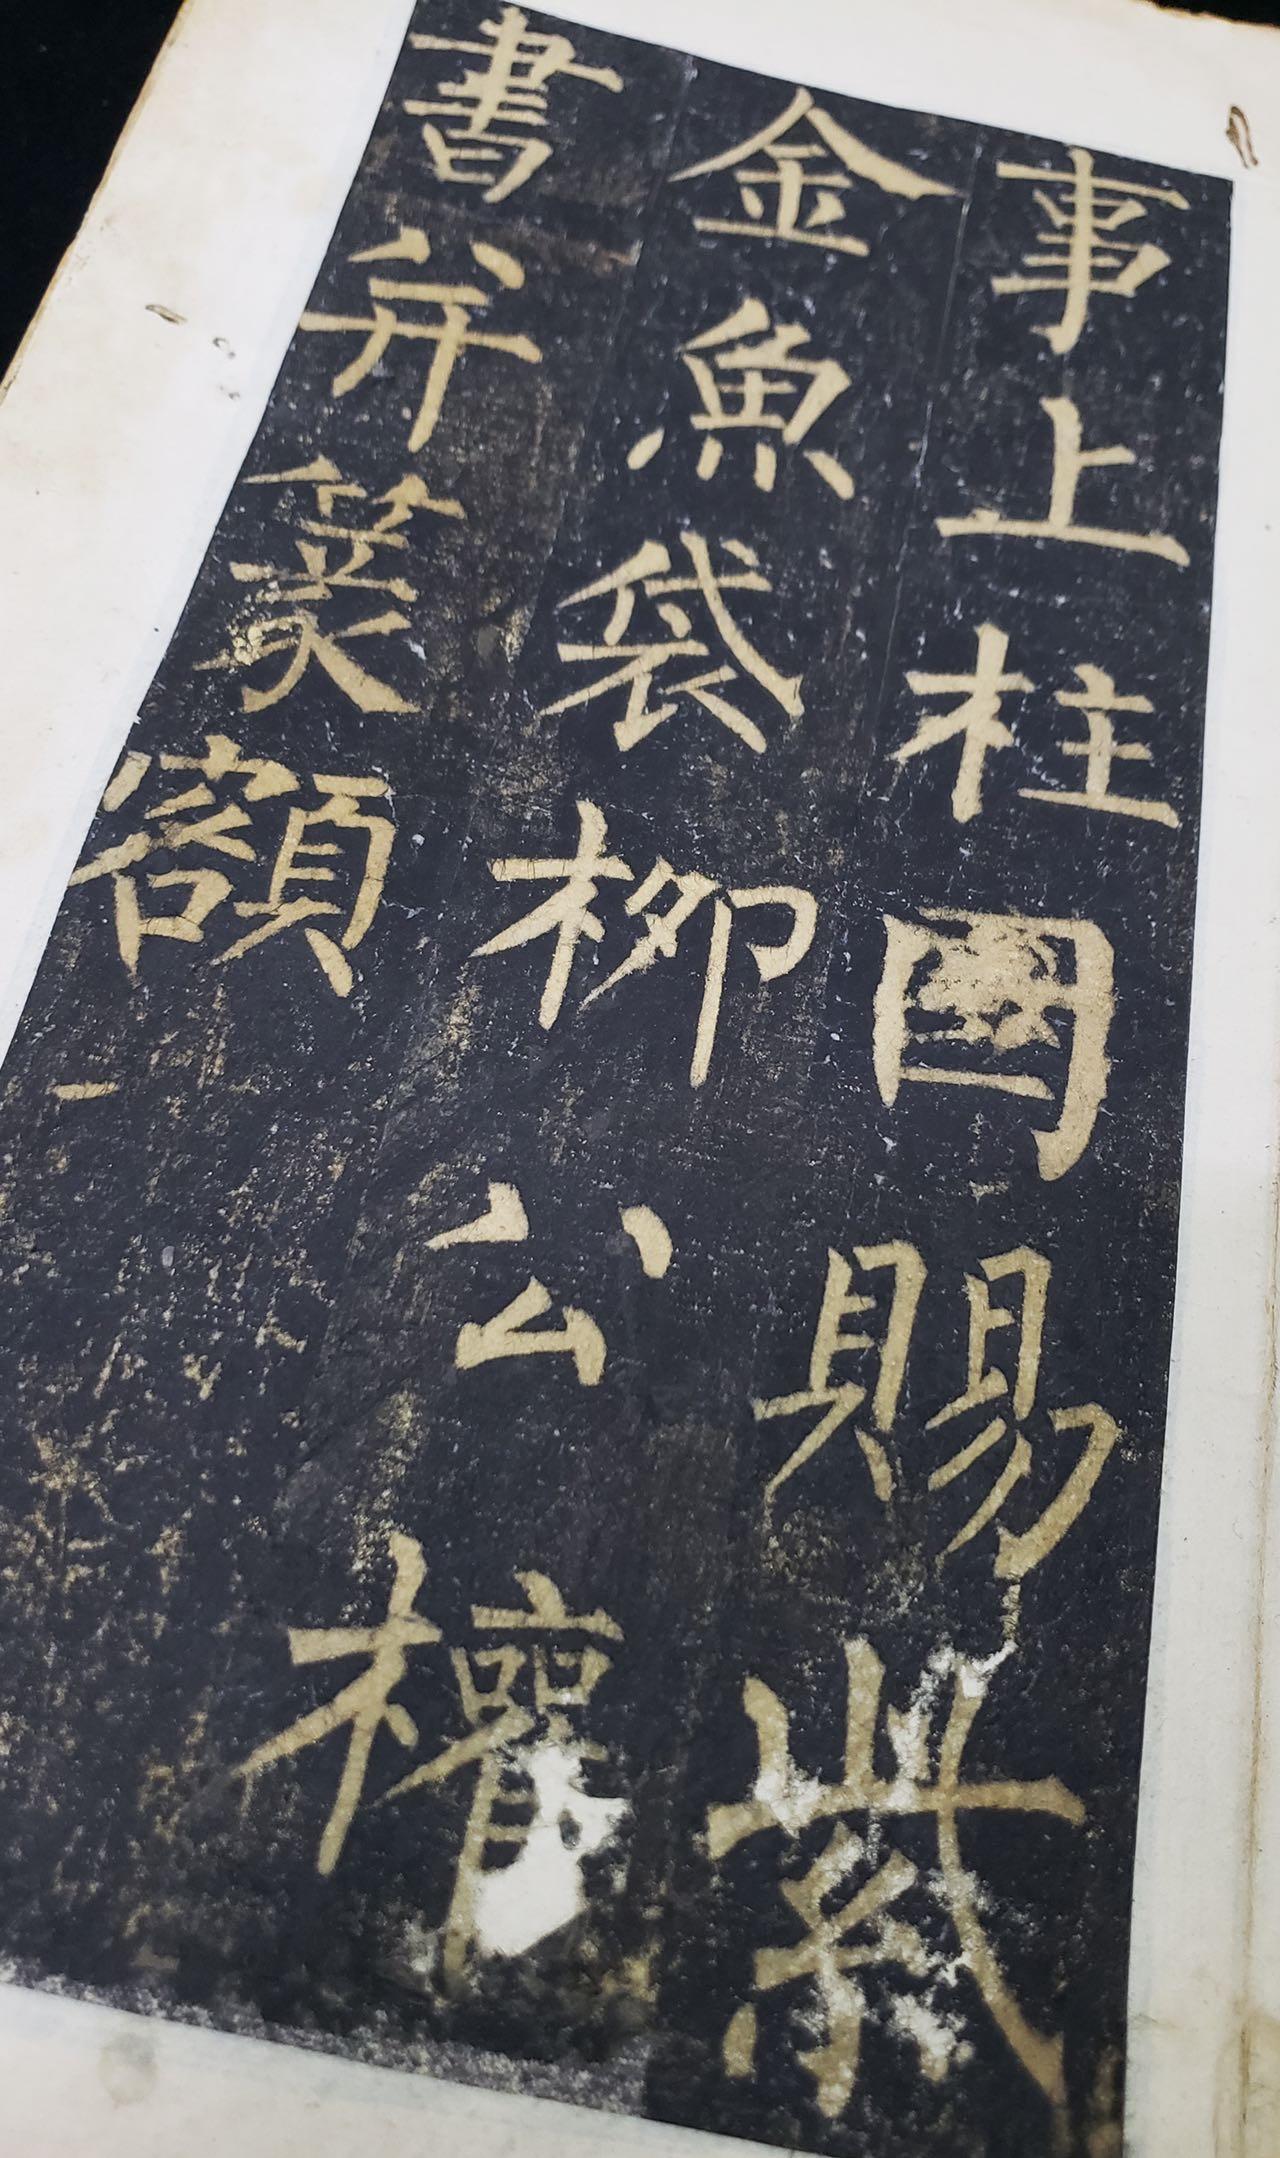 事上柱國賜紫
金魚袋柳公權
書并篆額